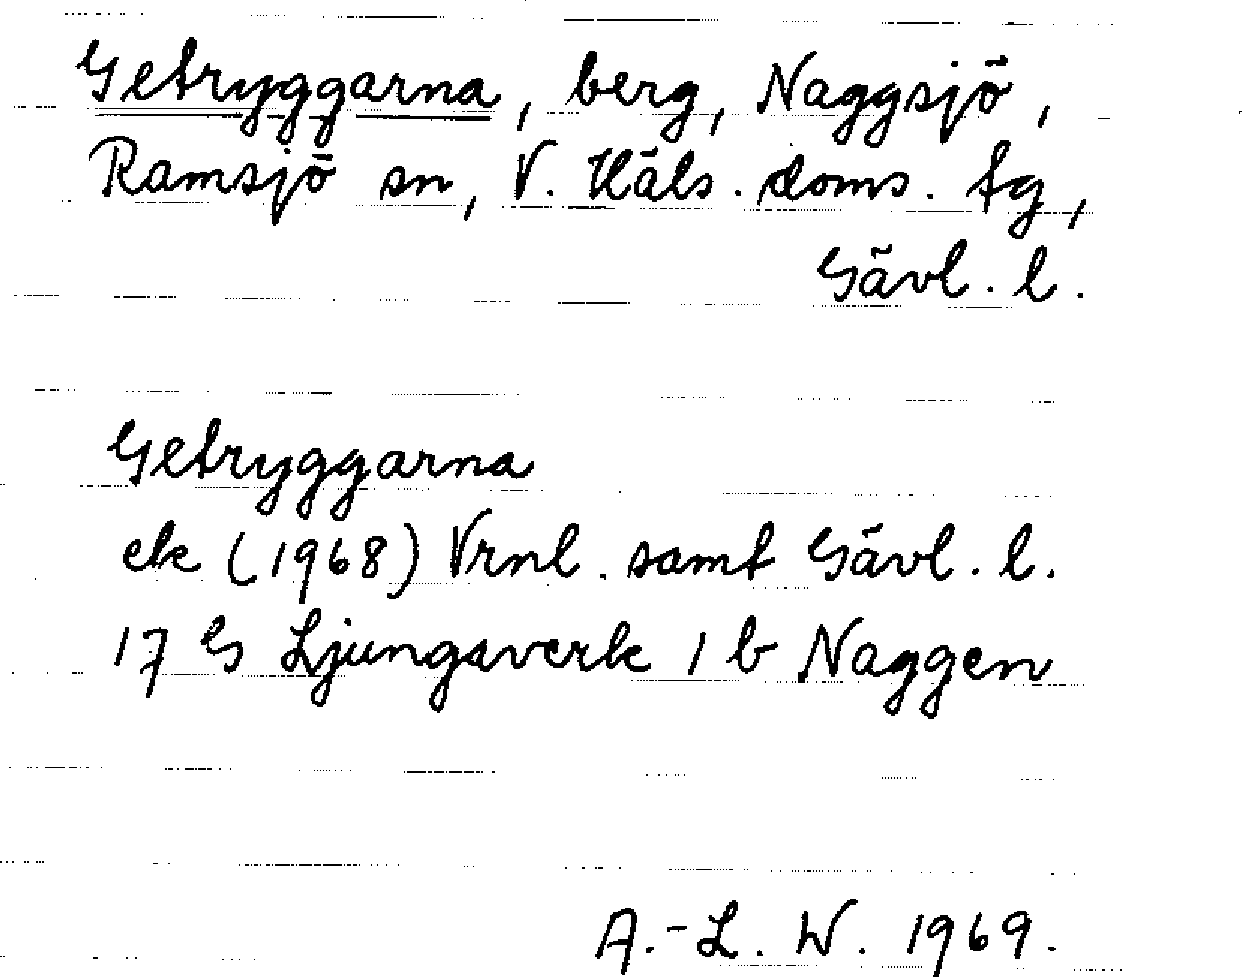 Getryggarna, berg, Naggsjö,
Ramsjö sn, V. Häls. doms. tg,
Gävl. l.
Getryggarna
ek (1968) Vrnl. samt Gävl. l.
17 G Ljungaverk 1 b Naggen
A.-L. W. 1969.